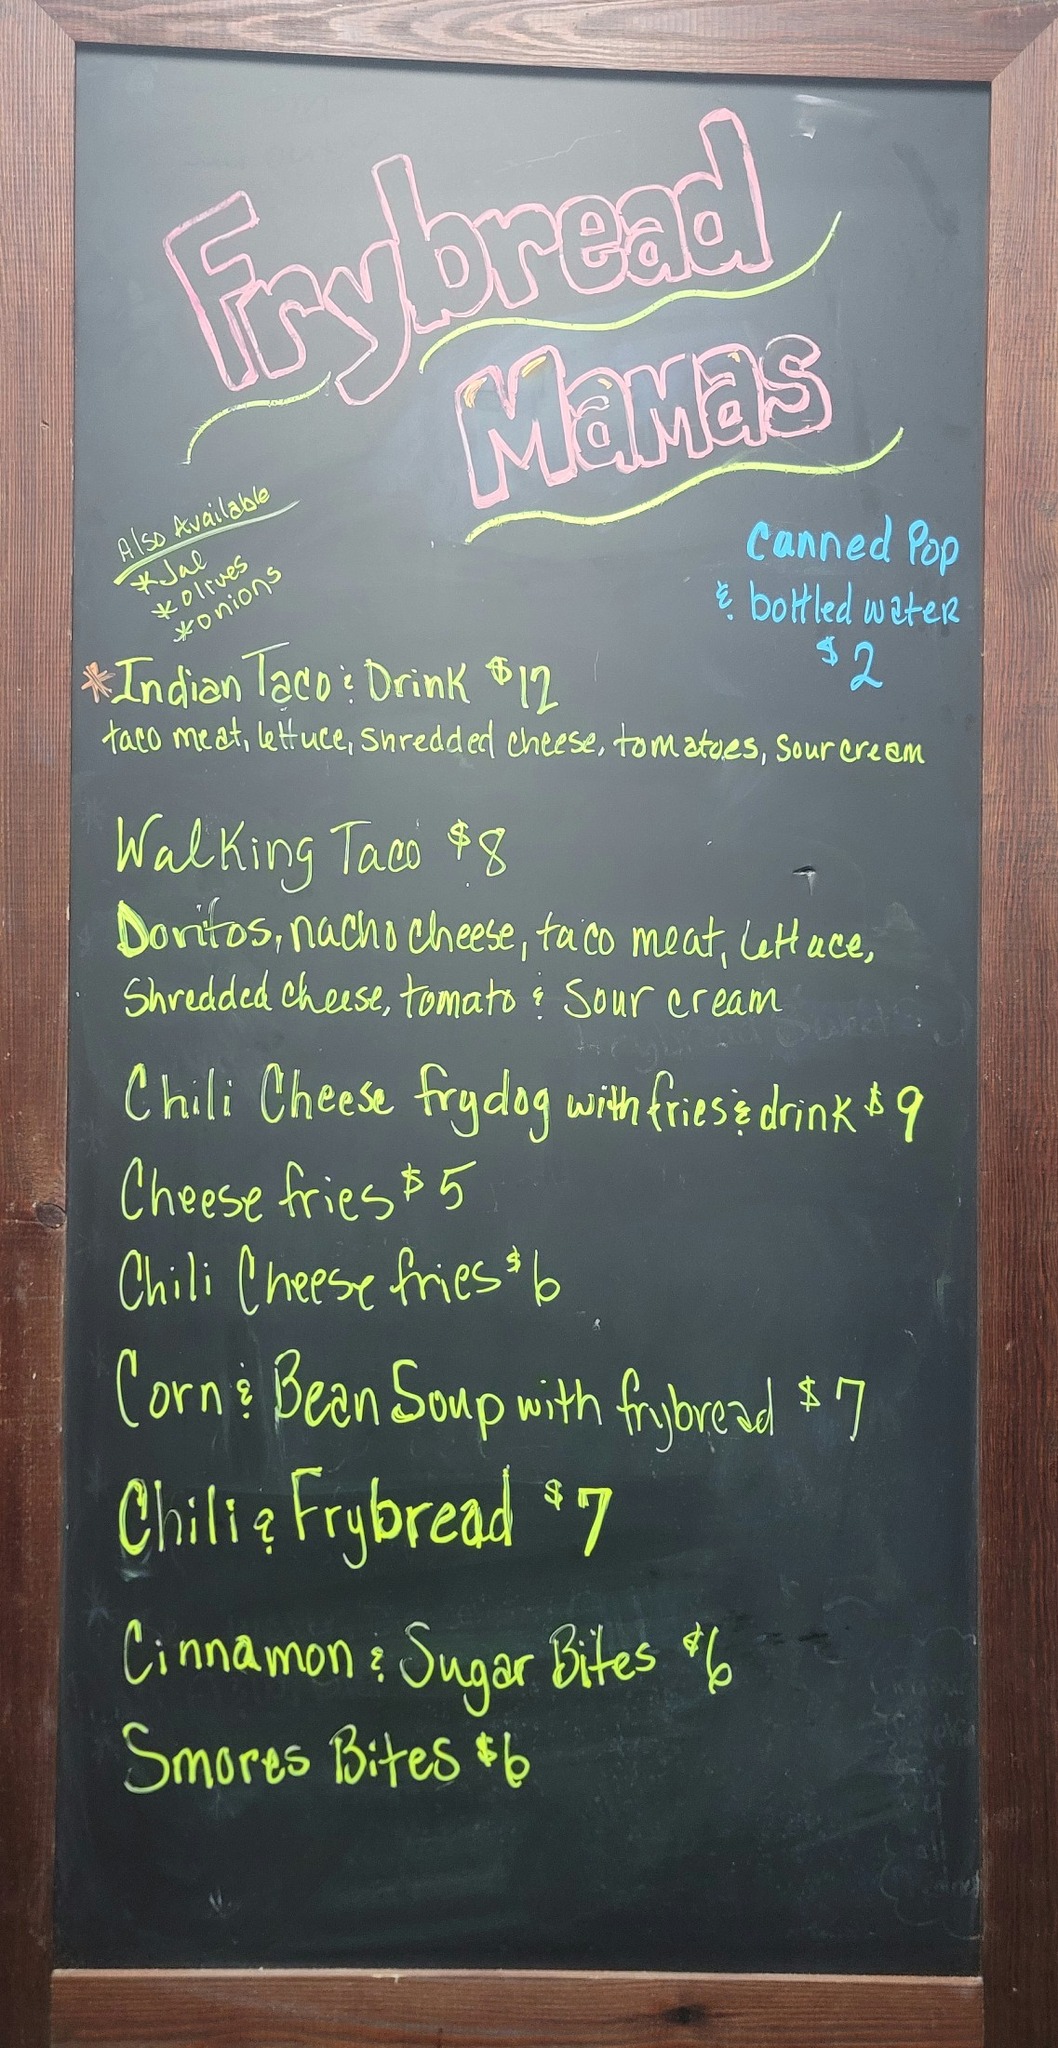 Frybread
Mamas
Also Available
*Jal
*olives
*onions
Canned Pop
& bottled water
$2
*Indian Taco & Drink $12
taco meat, lettuce, shredded cheese, tomatoes, sour cream
Walking Taco $8
Doritos, nacho cheese, taco meat, lettuce,
Shredded cheese, tomato & sour cream
Chili Cheese frydog with fries & drink $9
Cheese fries $5
Chili Cheese fries $6
Corn & Bean Soup with frybread $7
Chili & Frybread $7
Cinnamon & Sugar Bites $6
Smores Bites $6